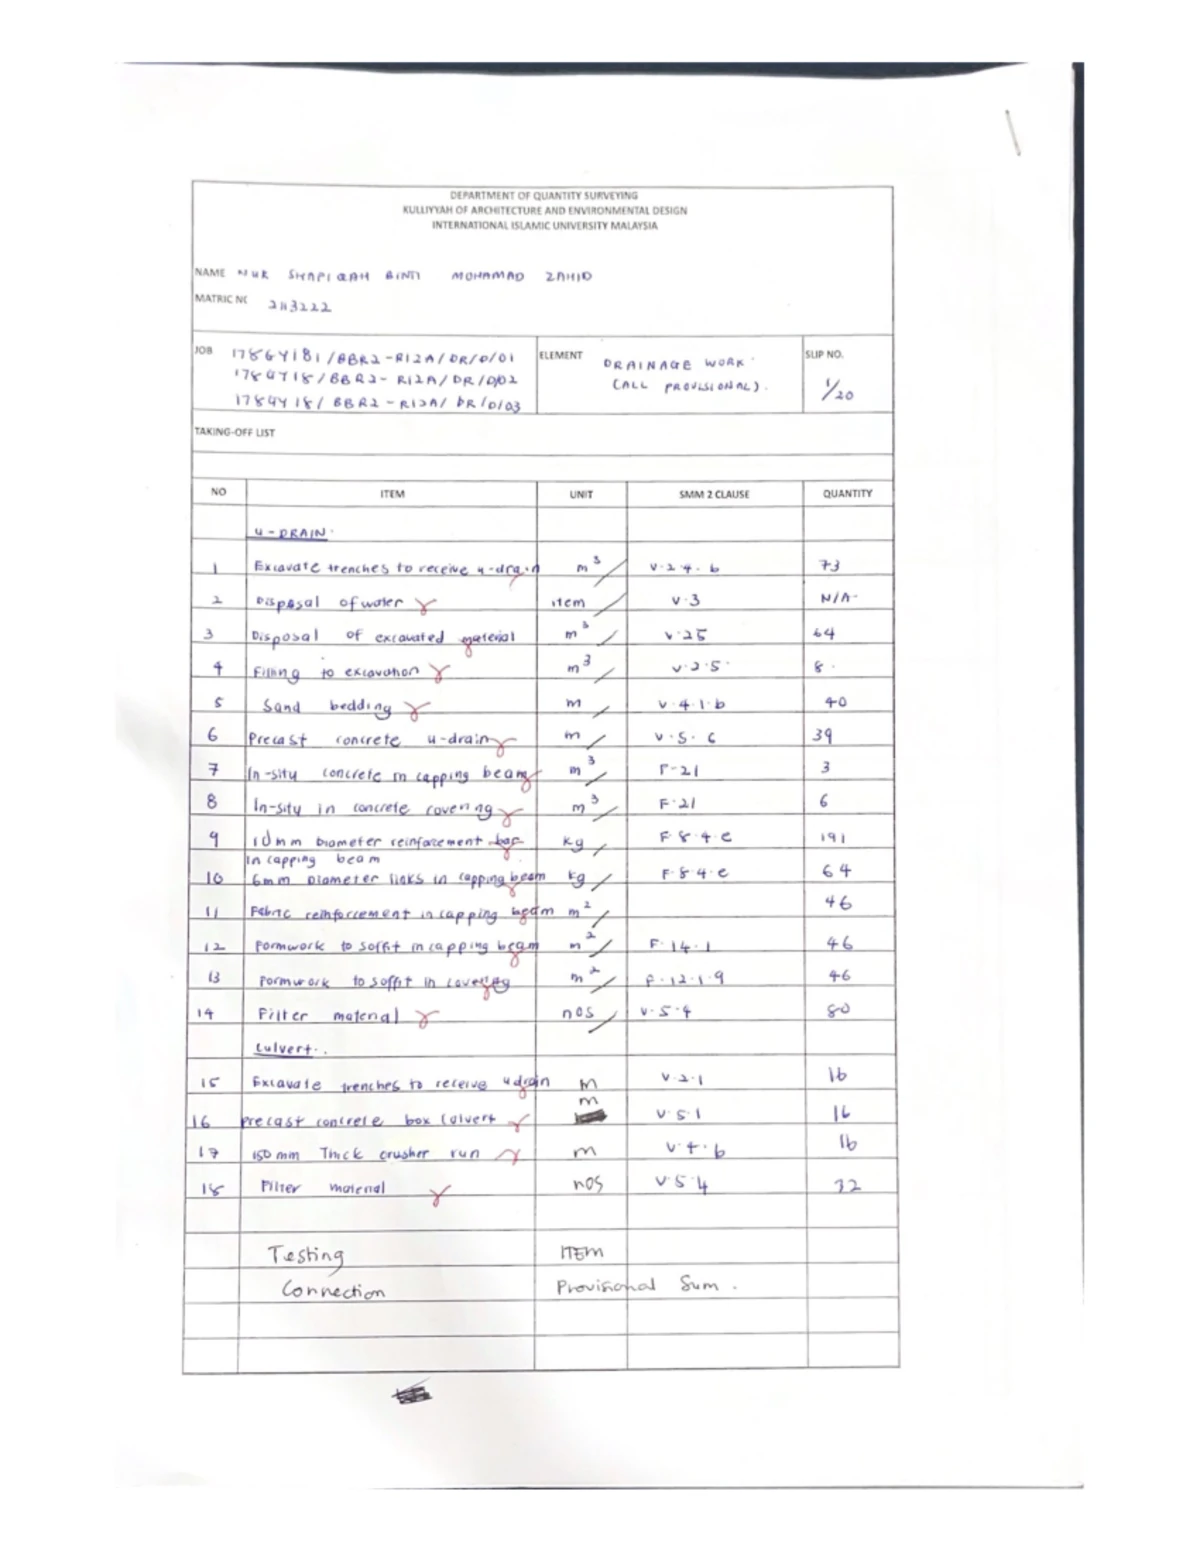 DEPARTMENT OF QUANTITY SURVEYING
KULLIYYAH OF ARCHITECTURE AND ENVIRONMENTAL DESIGN
INTERNATIONAL ISLAMIC UNIVERSITY MALAYSIA
NAME NUR SHAFIQAH BINTI MOHAMAD ZAHID
MATRIC NO 2113222
JOB 1786Y181/BBR2-R12A/DR/D/01
178GY18/BBR2-R12A/DR/D/02
178GY18/BBR2-R12A/DR/D/03
ELEMENT DRAINAGE WORK
(ALL PROVISIONAL).
SLIP NO.
1/20
TAKING-OFF LIST
NO ITEM UNIT SMM 2 CLAUSE QUANTITY
U-DRAIN
1 Excavate trenches to receive u-drain m3 V.2.4.b 73
2 Disposal of water item V.3 N/A
3 Disposal of excavated material m3 V.25 64
4 Filling to excavation m3 V.2.5 8
5 Sand bedding m V.4.1.b 40
6 Precast concrete u-drain m V.5.6 39
7 In-situ concrete in capping beam m3 F-21 3
8 In-situ in concrete covering m3 F.21 6
9 10mm Diameter reinforcement bar kg F.8.4.e 191
in capping beam
10 6mm Diameter links in capping beam kg F.8.4.e 64
11 Fabric reinforcement in capping beam m2 46
12 Formwork to soffit in capping beam m2 F.14.1 46
13 Formwork to soffit in covering m2 F.12.1.9 46
14 Filter material nos V.5.4 80
Culvert.
15 Excavate trenches to receive udrain m V.2.1 16
16 Precast concrete box culvert m V.5.1 16
17 150mm Thick crusher run m V.4.b 16
18 Filter material nos V.5.4 32
Testing ITEM
Connection Provisional Sum.